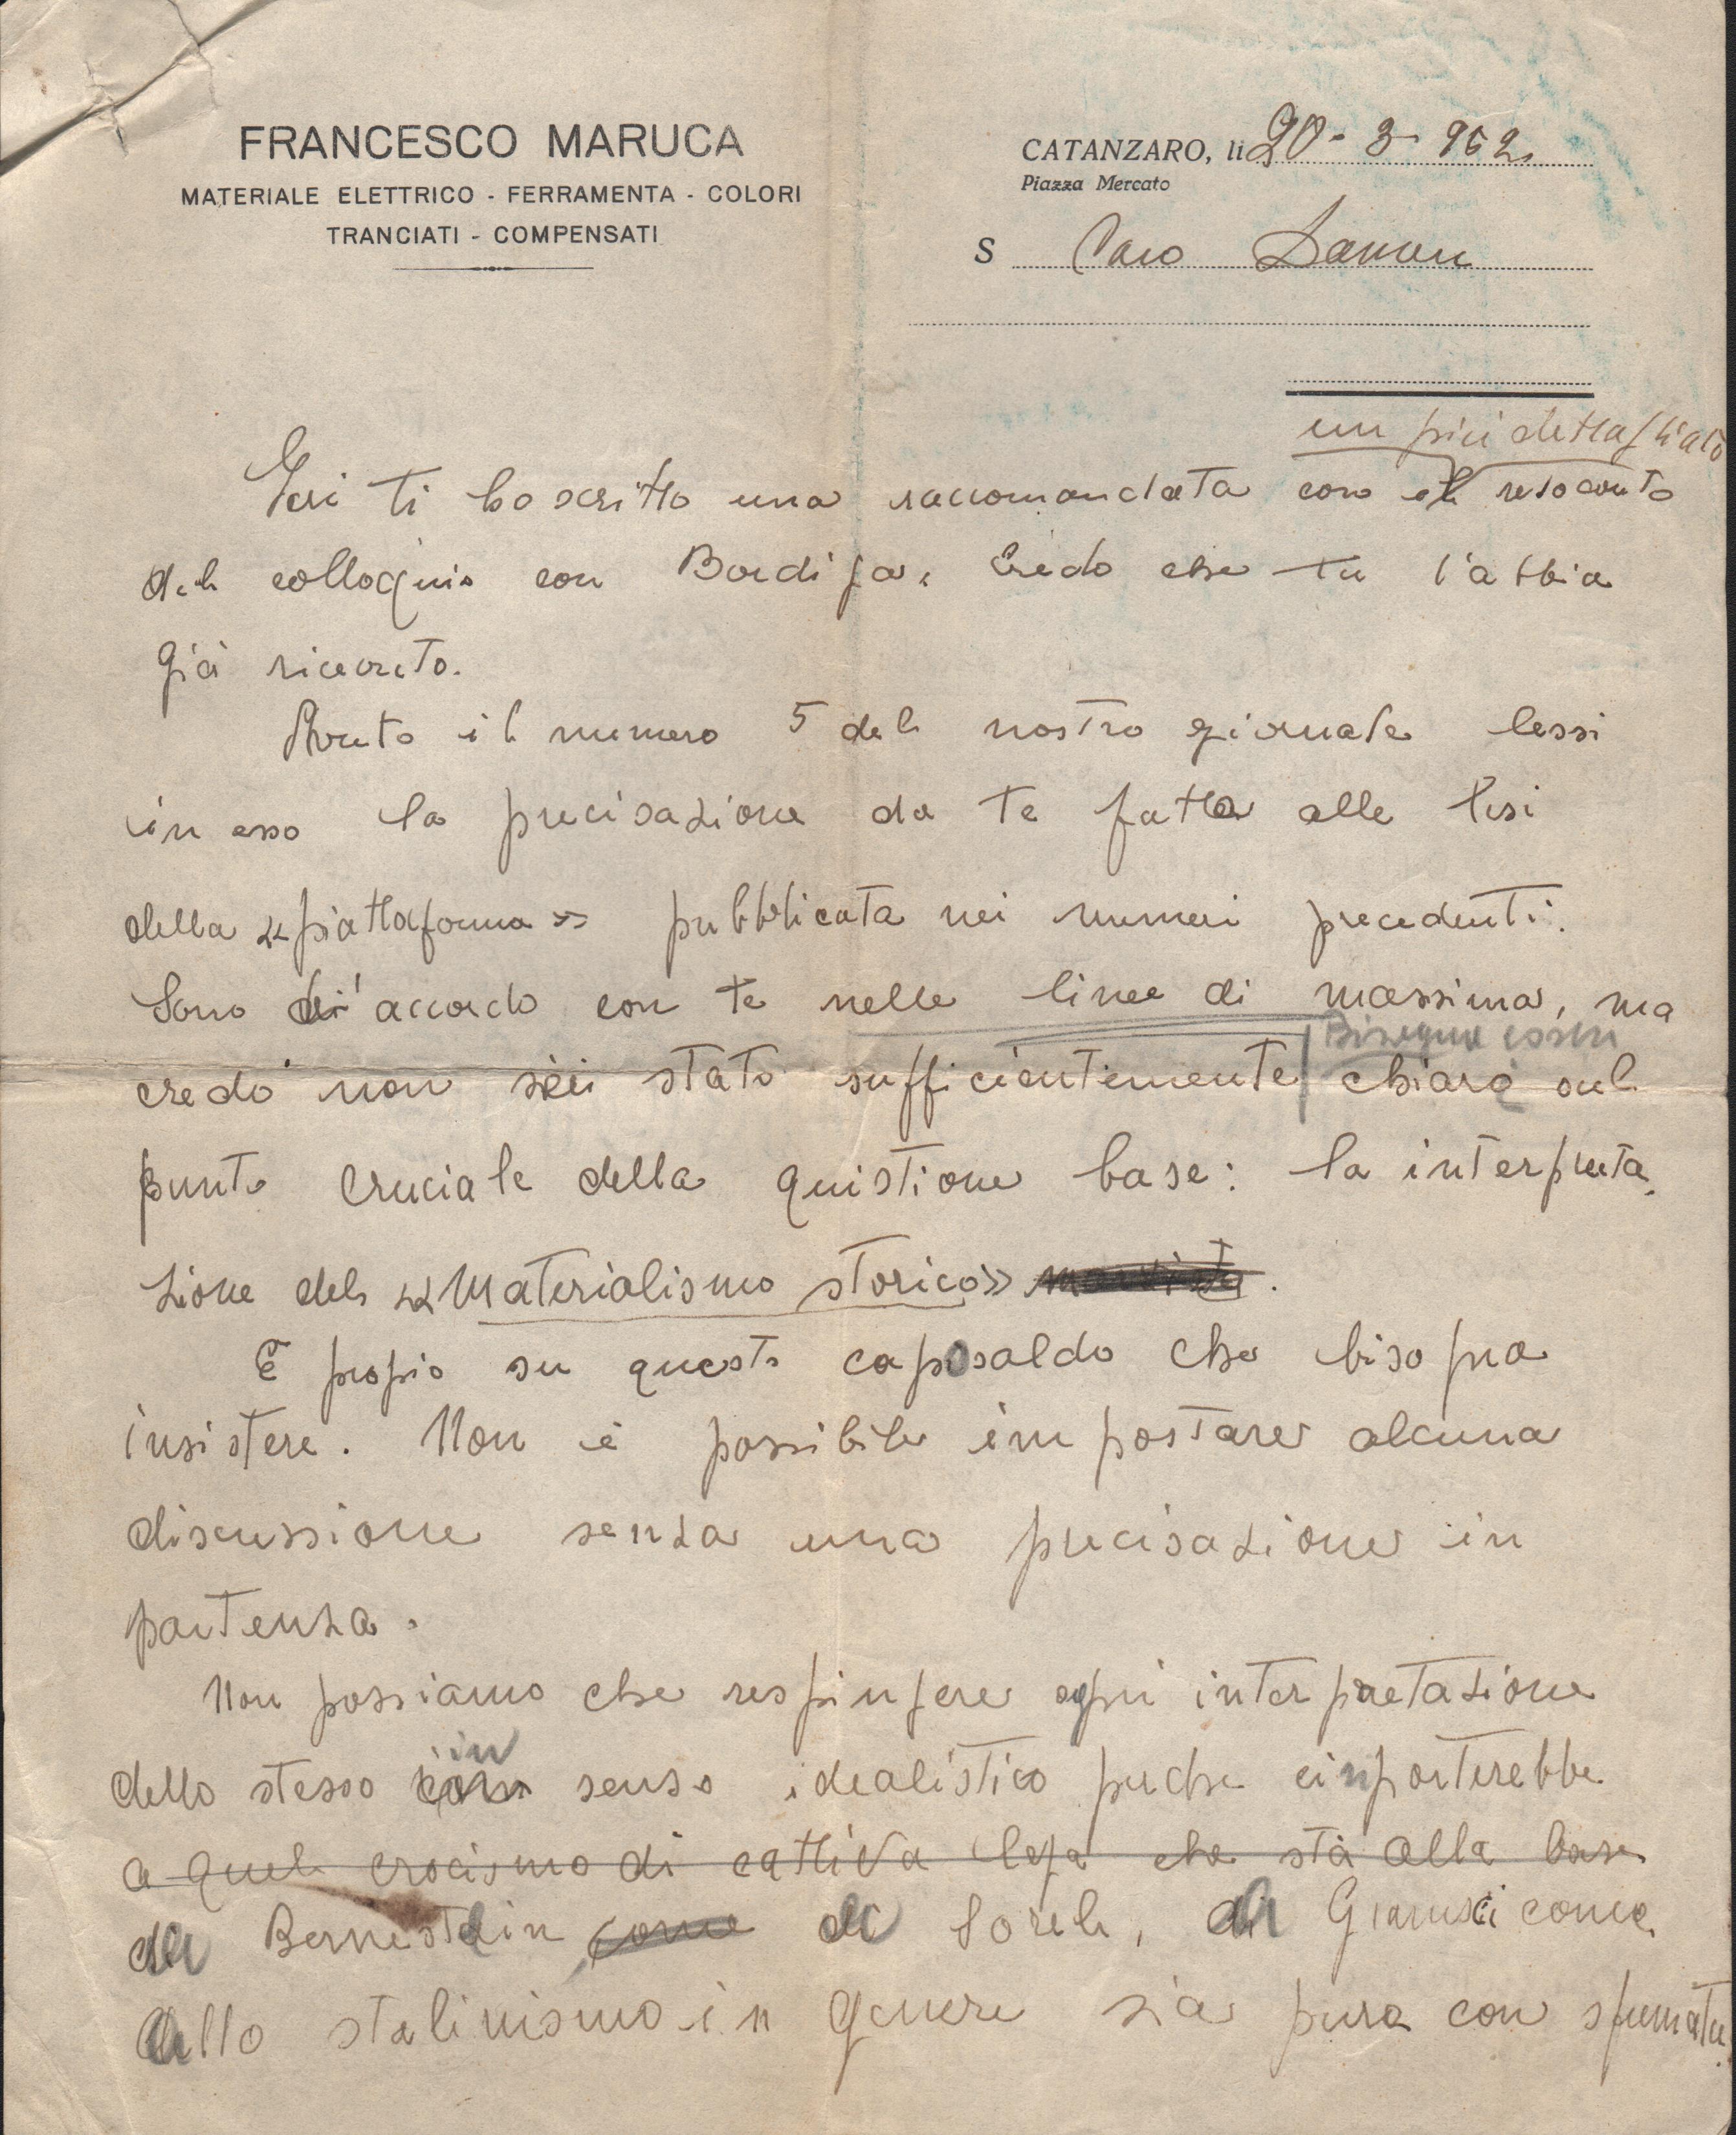 FRANCESCO MARUCA
MATERIALE ELETTRICO - FERRAMENTA - COLORI
TRANCIATI - COMPENSATI
CATANZARO, li 20 - 3 - 952
Piazza Mercato
S Caro Damen
un più dettagliato
Ieri ti ho scritto una raccomandata con il resoconto
del colloquio con Bordiga. Credo che tu l'abbia
già ricevuto.
Avuto il numero 5 del nostro giornale lessi
in esso la precisazione da te fatta alle tesi
della «piattaforma» pubblicata nei numeri precedenti.
Sono d'accordo con te nelle linee di massima, ma
Bisegna
credo non sei stato sufficientemente chiaro sul
punto cruciale della quistione base: la interpreta
zione del «Materialismo storico» marxista.
E propio su questo caposaldo che bisogna
insistere. Non è possibile impostare alcuna
discussione senza una precisazione in
partenza.
Non possiamo che respingere ogni interpretazione
in
dello stesso senso idealistico perche ci porterebbe
a quel crocismo di cattiva lega che sta alla base
di Bernestein come di Sorel, di Gramsci come
dello stalinismo in genere sia pure con sfumatu